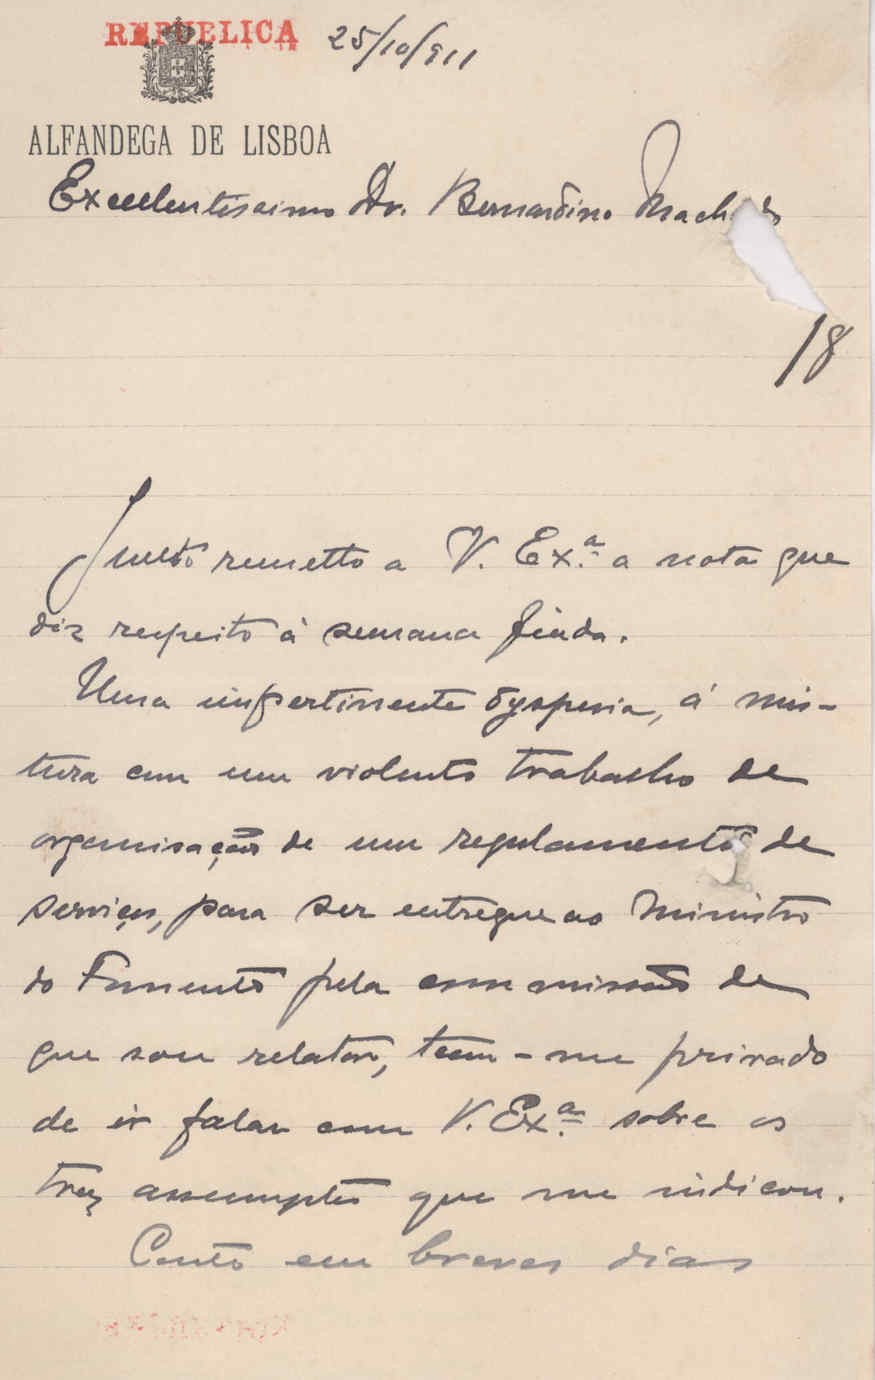 REPUBLICA 25/10/911
ALFANDEGA DE LISBOA
Excellentissimo Dr. Bernardino Machado
18
Junto remetto a V. Ex.ª a nota que
diz respeito á semana finda.
Uma impertinente dyspesia, á mis-
tura com um violento trabalho de
organisação de um regulamento de
serviços, para ser entregue ao Ministro
do Fomento pela commissão de
que sou relator, teem-me privado
de ir falar com V. Ex.ª sobre os
trez assumptos que me indicou.
Conto em breves dias